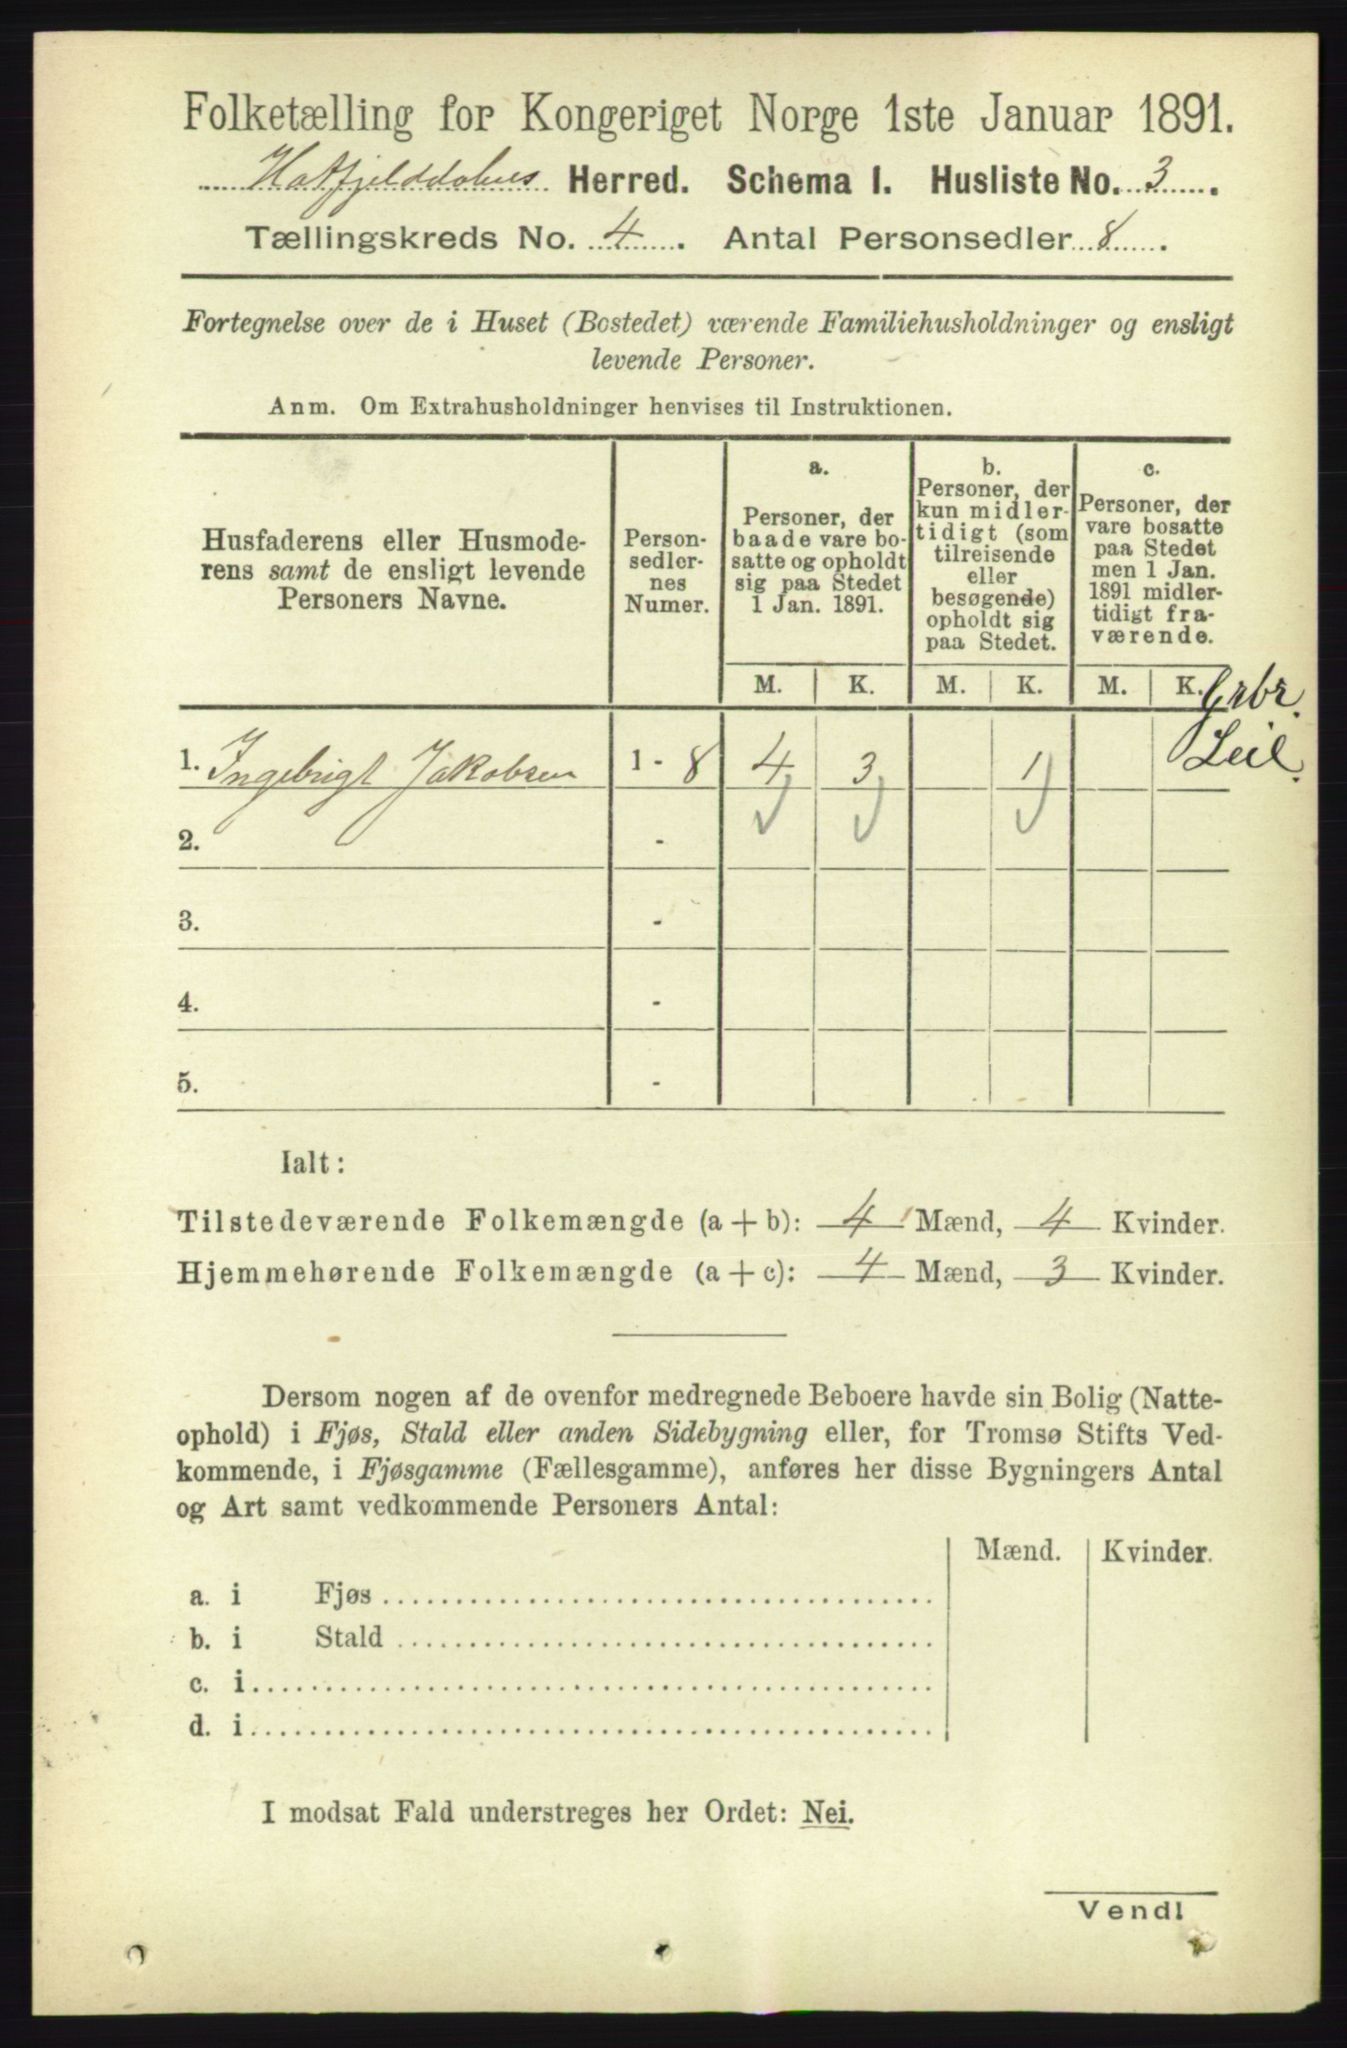 Folketælling for Kongeriget Norge 1ste Januar 1891.
Hatfjelddalens Herred. Schema I. Husliste No. 3.
Tællingskreds No. 4. Antal Personsedler 8.
Fortegnelse over de i Huset (Bostedet) værende Familiehusholdninger og ensligt
levende Personer.
Anm. Om Extrahusholdninger henvises til Instruktionen.
Husfaderens eller Husmode-
rens samt de ensligt levende
Personers Navne.
Person-
sedler-
nes
Numer.
a.
Personer, der
baade vare bo-
satte og opholdt
sig paa Stedet
1 Jan. 1891.
b.
Personer, der
kun midler-
tidigt (som
tilreisende
eller
besøgende)
opholdt sig
paa Stedet.
c.
Personer, der
vare bosatte
paa Stedet
men 1 Jan.
1891 midler-
tidigt fra-
værende.
M. K. M. K. M. K. Grbr.
1. Ingebrigt Jakobsen 1 - 8 4 3 1 Leil.
2. -
3. -
4. -
5. -
Ialt:
Tilstedeværende Folkemængde (a + b): 4 Mænd, 4 Kvinder.
Hjemmehørende Folkemængde (a + c): 4 Mænd, 3 Kvinder.
Dersom nogen af de ovenfor medregnede Beboere havde sin Bolig (Natte-
ophold) i Fjøs, Stald eller anden Sidebygning eller, for Tromsø Stifts Ved-
kommende, i Fjøsgamme (Fællesgamme), anføres her disse Bygningers Antal
og Art samt vedkommende Personers Antal:
Mænd. Kvinder.
a. i Fjøs
b. i Stald
c. i
d. i
I modsat Fald understreges her Ordet: Nei.
Vend!